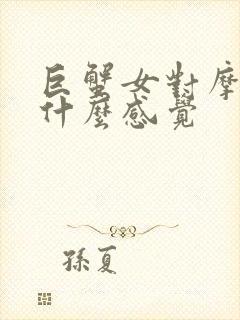 巨蟹女對摩
什麼感覺
孫夏